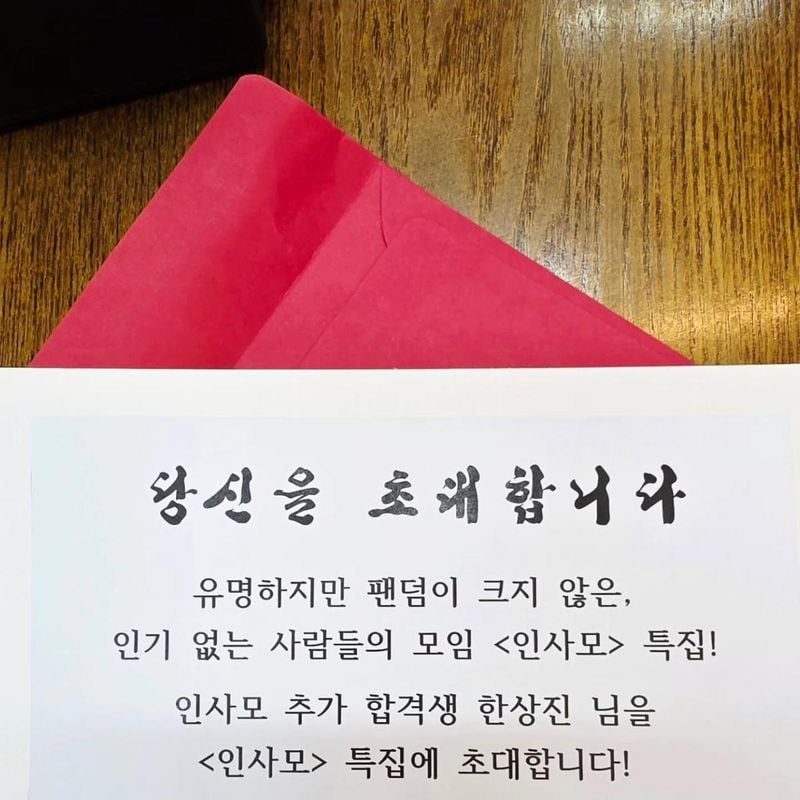 당신을 초대합니다
유명하지만 팬덤이 크지 않은,
인기 없는 사람들의 모임 <인사모> 특집!
인사모 추가 합격생 한상진 님을
<인사모> 특집에 초대합니다!